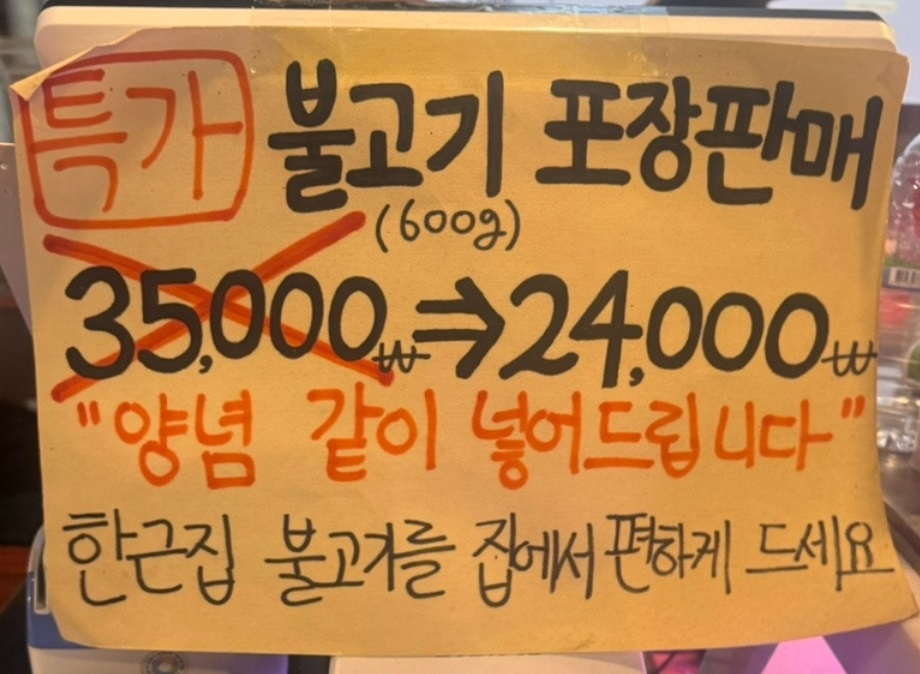 특가 불고기 포장판매
(600g)
35,000₩⇒24,000₩
"양념 같이 넣어드립니다"
한근집 불고기를 집에서 편하게 드세요